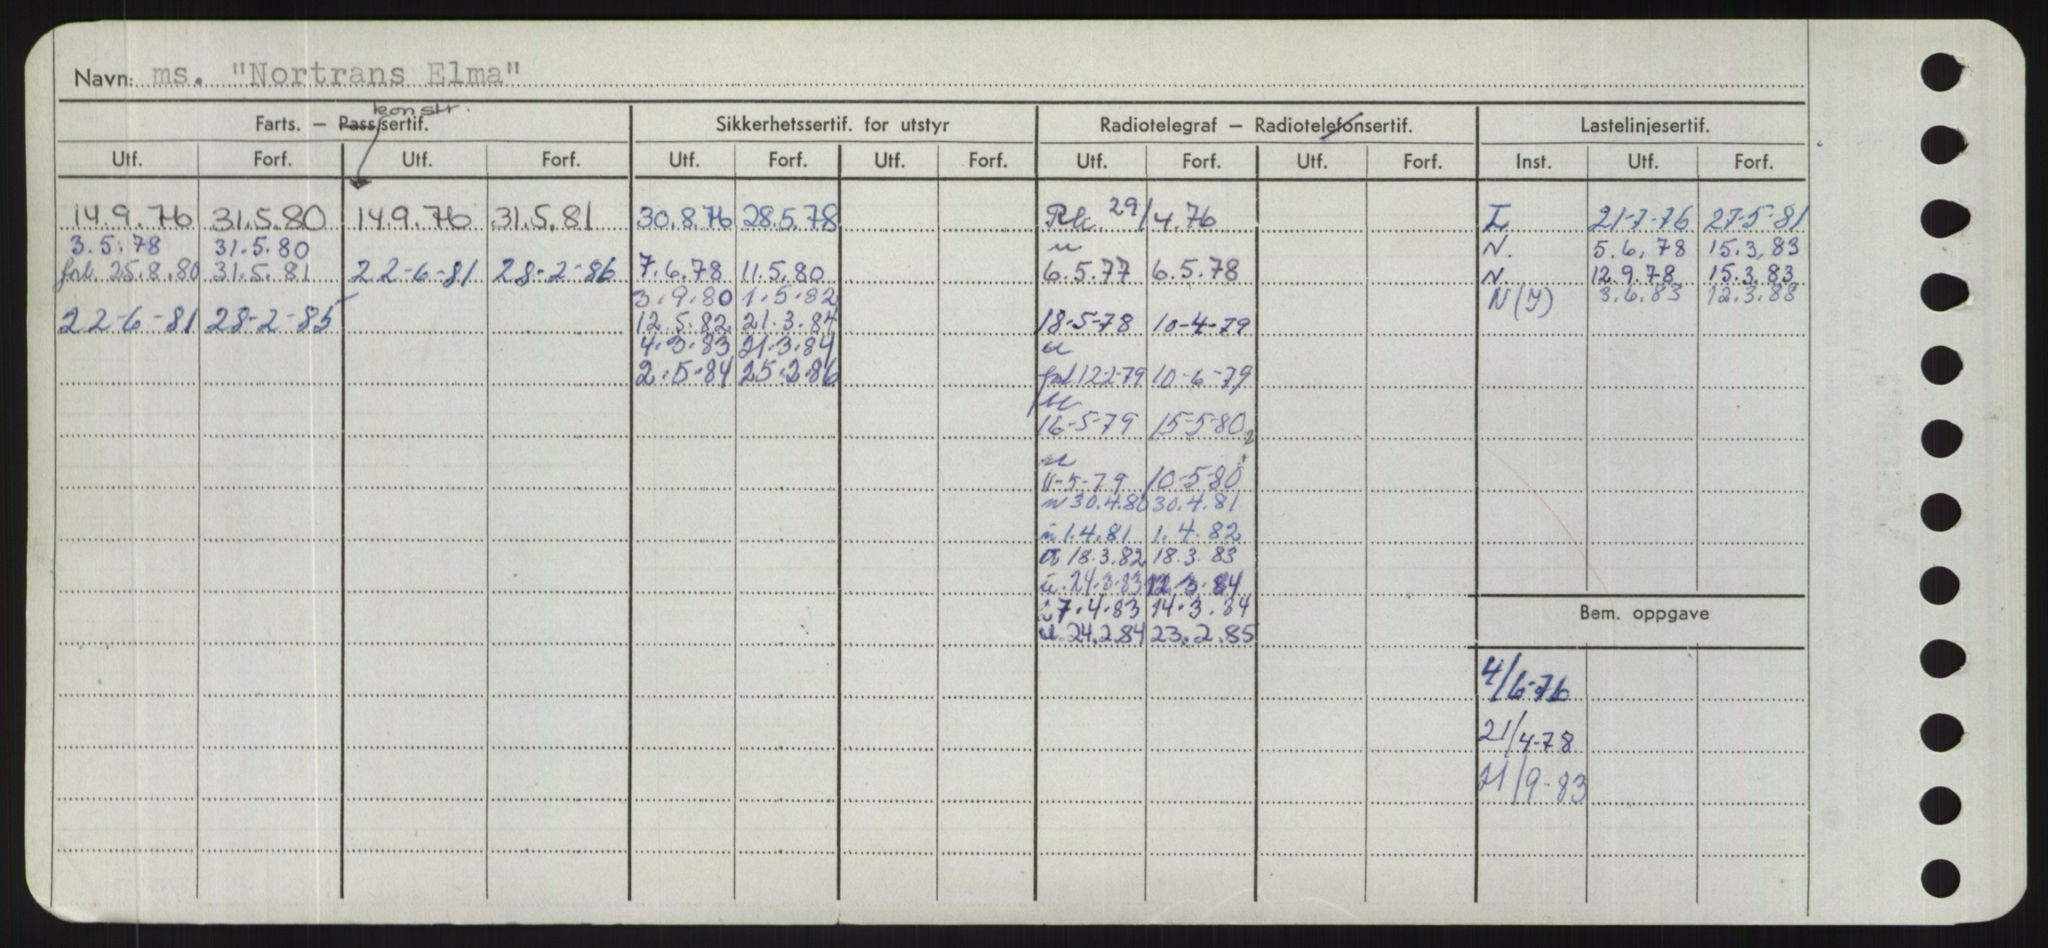 Navn: ms. "Nortrans Elma"
konstr.
Farts. — Pass/sertif. Sikkerhetssertif. for utstyr Radiotelegraf — Radiotelefonsertif. Lastelinjesertif.
Utf. Forf. Utf. Forf. Utf. Forf. Utf. Forf. Utf. Forf. Utf. Forf. Inst. Utf. Forf.
14.9.76 31.5.80 14.9.76 31.5.81 30.8.76 28.5.78 29/4.76 I 21-7-76 27-5-81
3.5.78 31.5.80 N. 5.6.78 15.3.83
25.8.80 31.5.81 22-6-81 28-2-86 7.6.78 11.5.80 6.5.77 6.5.78 N. 12.9.78 15.3.83
3.9.80 1.5.82 N(Y) 3.6.83 12.3.88
22-6-81 28-2-85 12.5.82 21.3.84 18-5-78 10-4-79
4.3.83 21.3.84
2.5.84 25.2.86 122-79 10-6-79
16-5-79 15-5-80
11-5-79 10-5-80
30.4.80 30.4.81
1.4.81 1.4.82
18.3.82 18.3.83
24.3.83 12.3.84
7.4.83 14.3.84
24.2.84 23.2.85
Bem. oppgave
4/6-76
21/4-78
21/9-83